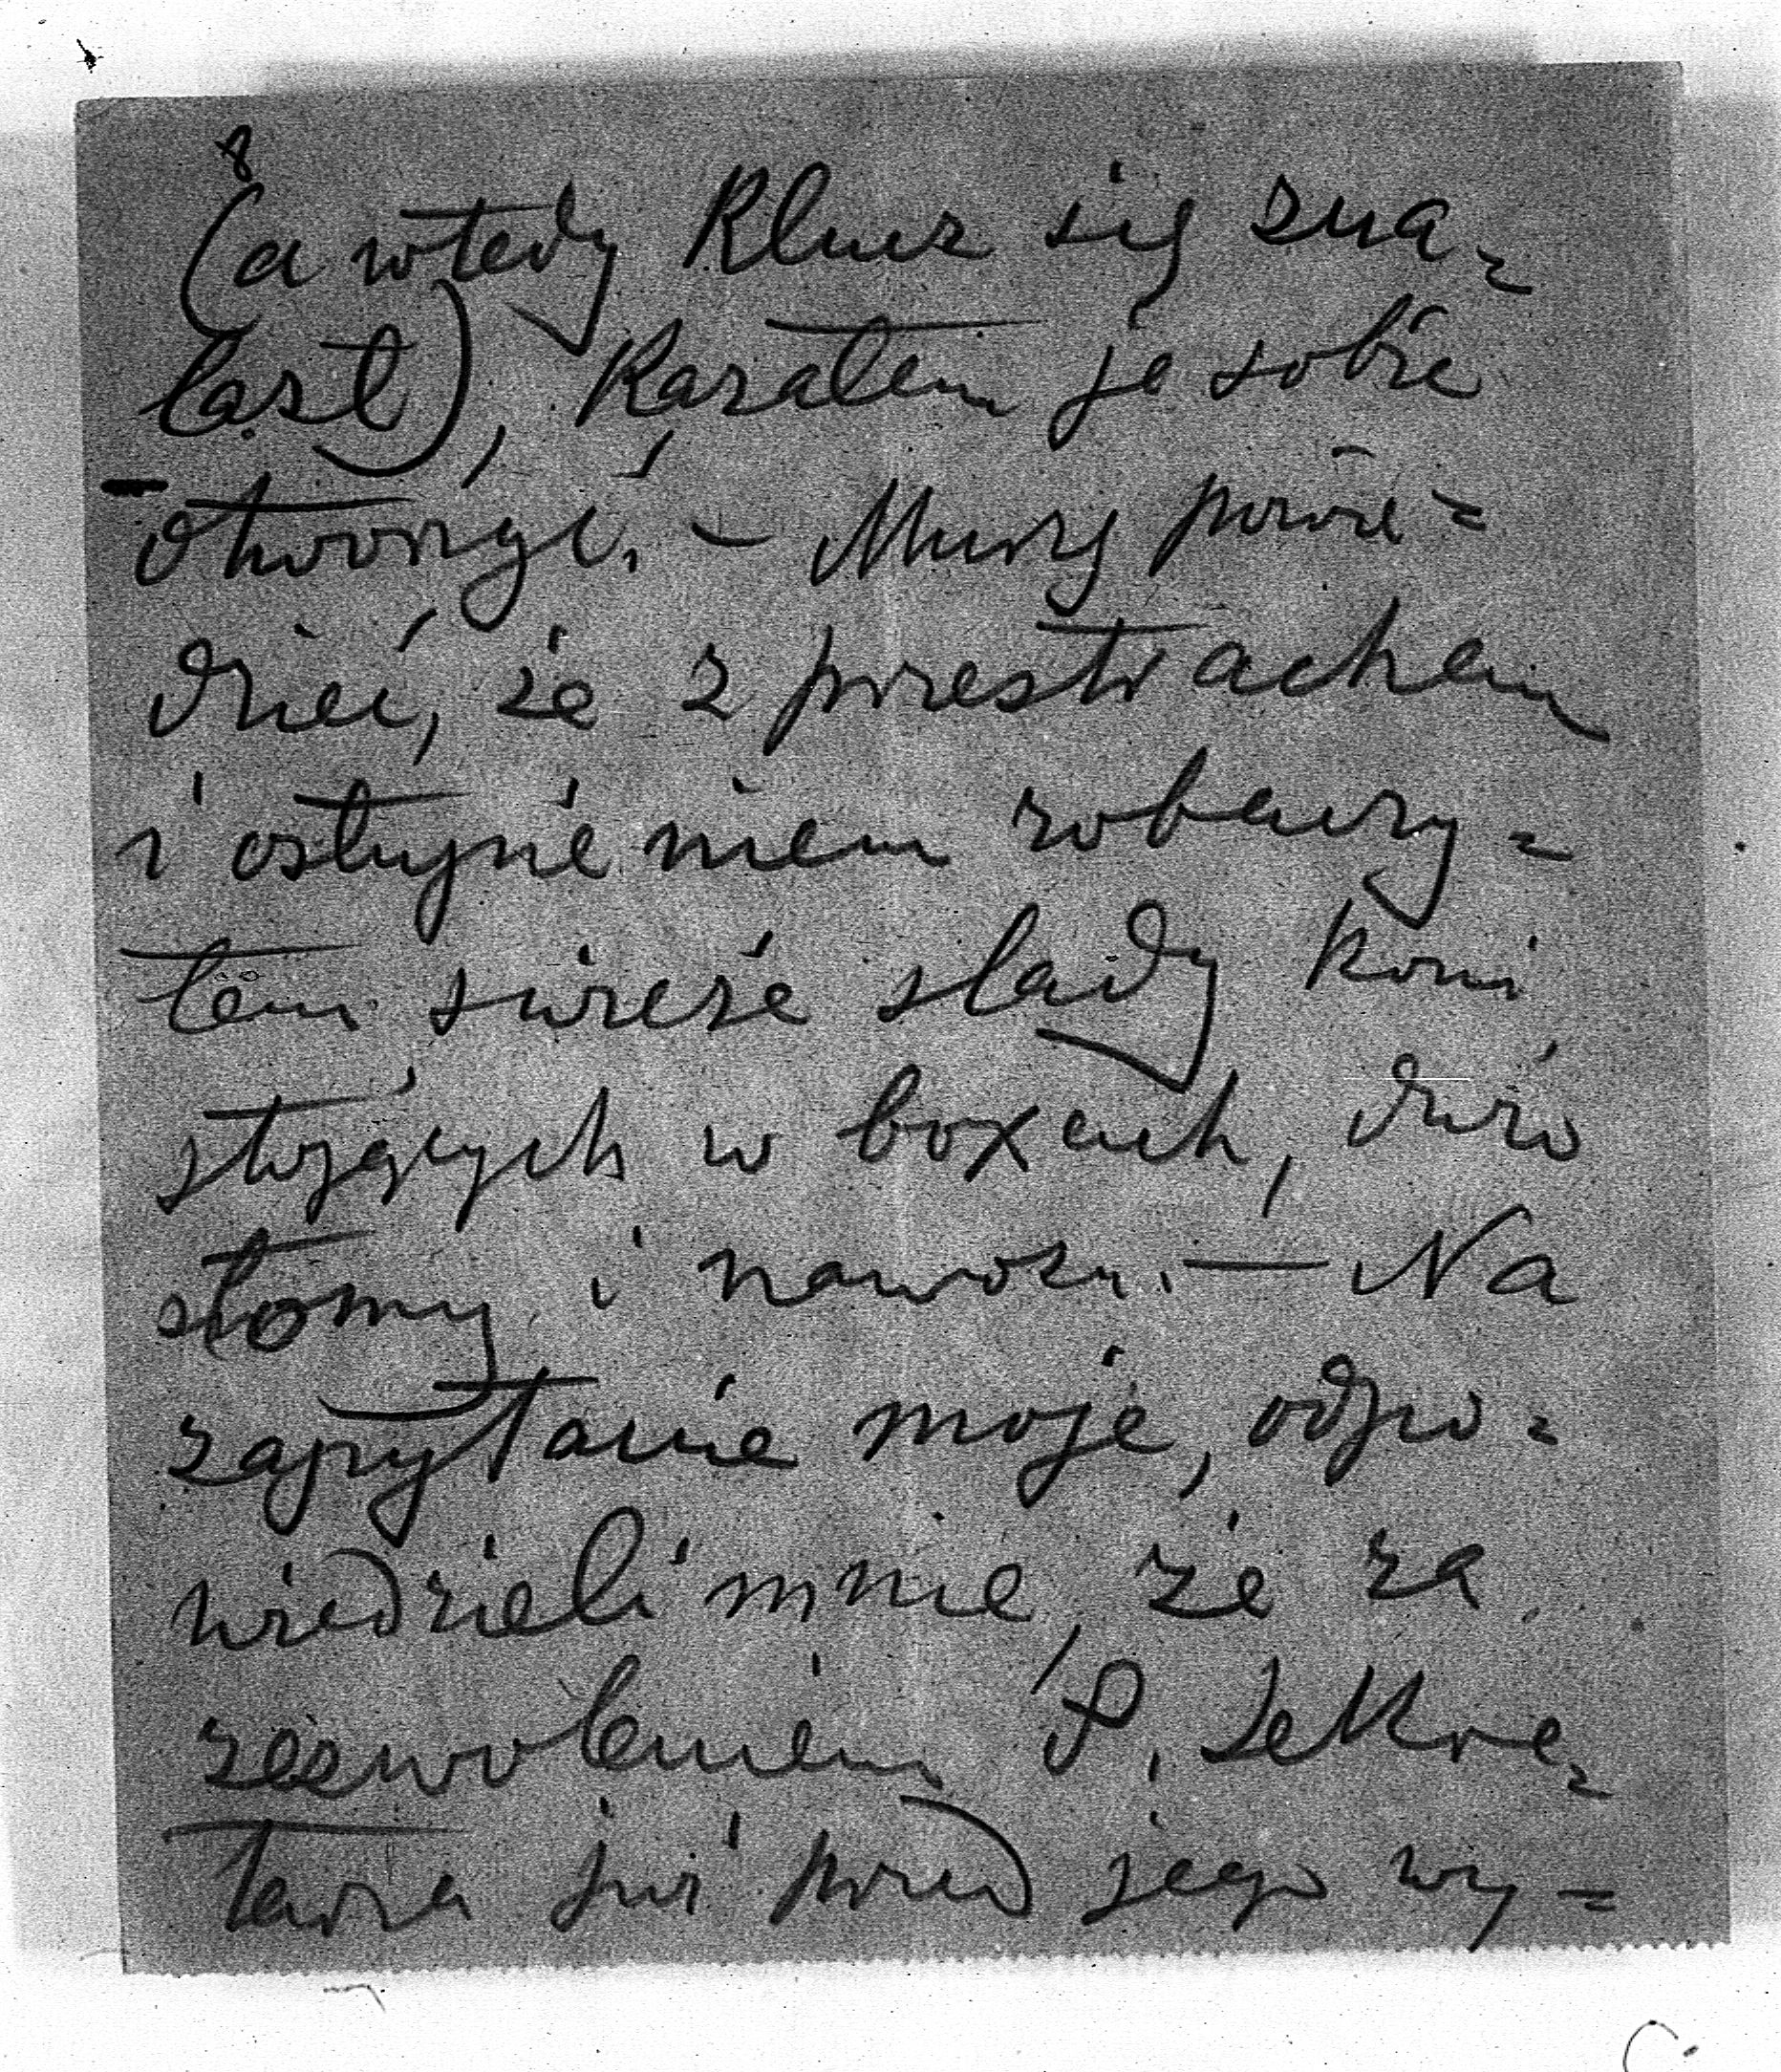 8
(a wtedy klucz się zna=
lazł), kazałem je sobie
otworzyć. – Muszę powie=
dzieć, że z przestrachem
i ostupieniem zobaczy=
łem świeże ślady koni
stojących w boxach, dużo
słomy i nawozu. — Na
zapytanie moje, odpo=
wiedzieli mnie, że za
zezwoleniem P. Sekre=
tarza już przed jego wy=